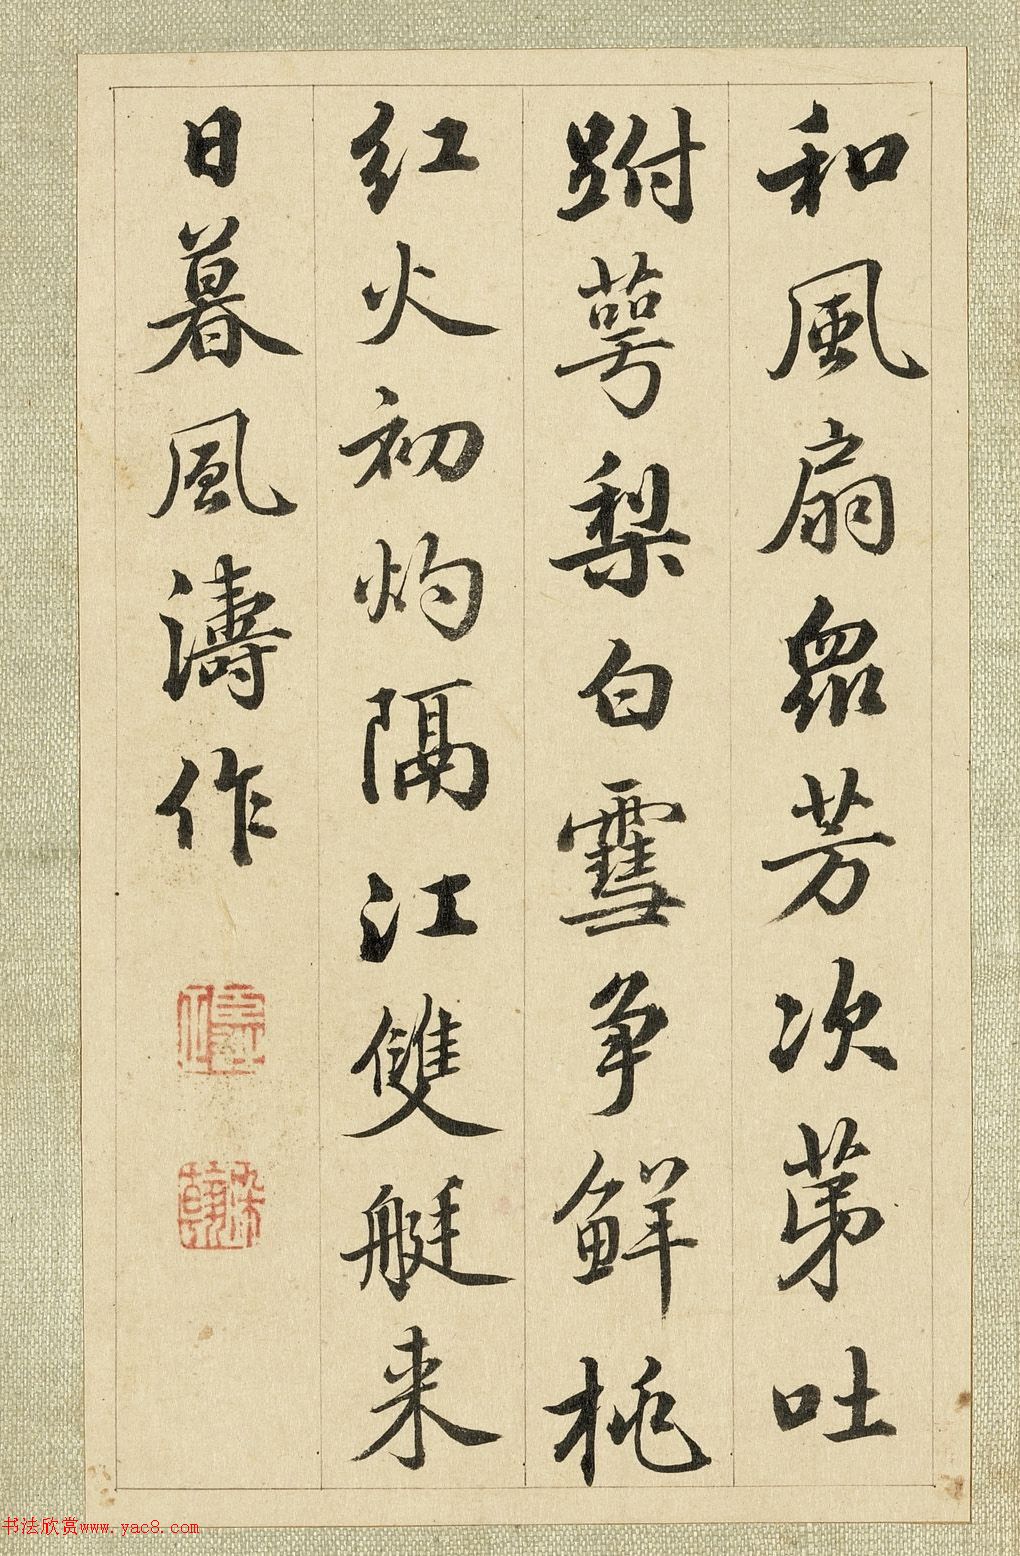 和風扇眾芳次苐吐
跗蕚梨白雪争鲜桃
红火初灼隔江雙艇来
日暮風濤作
书法欣赏www.yac8.com